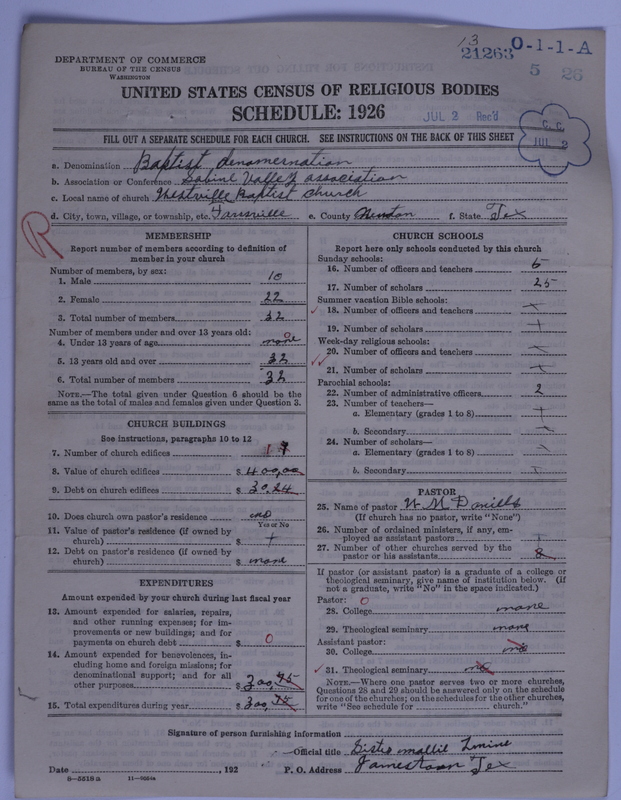 DEPARTMENT OF COMMERCE
BUREAU OF THE CENSUS
WASHINGTON
13
21263
O-1-1-A
5 26
UNITED STATES CENSUS OF RELIGIOUS BODIES
SCHEDULE: 1926
JUL 2 Rec'd
C. C.
JUL 2
FILL OUT A SEPARATE SCHEDULE FOR EACH CHURCH. SEE INSTRUCTIONS ON THE BACK OF THIS SHEET
a. Denomination Baptist denomernation
b. Association or Conference Sabine Valley association
c. Local name of church Baptist Church
d. City, town, village, or township, etc. Farrsville e. County Newton f. State Tex
R
MEMBERSHIP
Report number of members according to definition of
member in your church
Number of members, by sex:
1. Male 10
2. Female 22
3. Total number of members 32
Number of members under and over 13 years old:
4. Under 13 years of age none 0
5. 13 years old and over 32
6. Total number of members 32
NOTE.—The total given under Question 6 should be the
same as the total of males and females given under Question 3.
CHURCH BUILDINGS
See instructions, paragraphs 10 to 12
7. Number of church edifices 1
8. Value of church edifices $ 400,00
9. Debt on church edifices $ 30.24
10. Does church own pastor's residence no
Yes or No
11. Value of pastor's residence (if owned by
church) $ +
12. Debt on pastor's residence (if owned by
church) $ none
EXPENDITURES
Amount expended by your church during last fiscal year
13. Amount expended for salaries, repairs,
and other running expenses; for im-
provements or new buildings; and for
payments on church debt $ 0
14. Amount expended for benevolences, in-
cluding home and foreign missions; for
denominational support; and for all
other purposes $ 300,45
15. Total expenditures during year $ 300,
CHURCH SCHOOLS
Report here only schools conducted by this church
Sunday schools:
16. Number of officers and teachers 5
17. Number of scholars 25
Summer vacation Bible schools:
18. Number of officers and teachers +
19. Number of scholars +
Week-day religious schools:
20. Number of officers and teachers +
21. Number of scholars +
Parochial schools:
22. Number of administrative officers 2
23. Number of teachers—
a. Elementary (grades 1 to 8) +
b. Secondary
24. Number of scholars—
a. Elementary (grades 1 to 8)
b. Secondary
PASTOR
25. Name of pastor W. M Daniells
(If church has no pastor, write "None")
26. Number of ordained ministers, if any, em-
ployed as assistant pastors +
27. Number of other churches served by the
pastor or his assistants
If pastor (or assistant pastor) is a graduate of a college or
theological seminary, give name of institution below. (If
not a graduate, write "No" in the space indicated.)
Pastor: 0
28. College none
29. Theological seminary none
Assistant pastor:
30. College no
31. Theological seminary no
NOTE.—Where one pastor serves two or more churches,
Questions 28 and 29 should be answered only on the schedule
for one of the churches; on the schedules for the other churches,
write "See schedule for church."
Signature of person furnishing information
Official title Sister mallie
Date , 192 P. O. Address Jamestown Tex
8-5518a 11-9054a